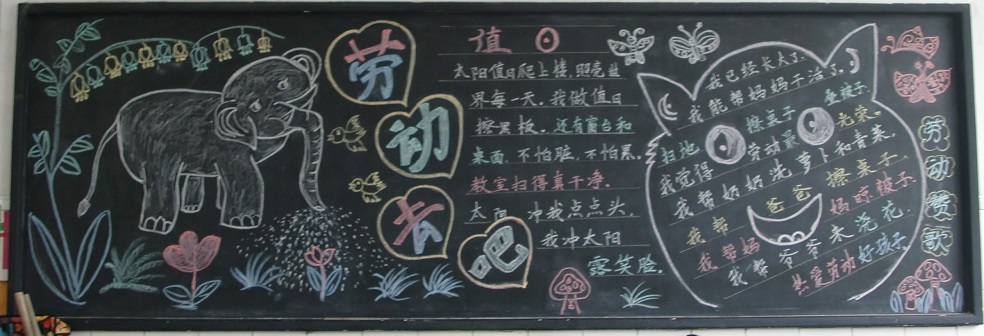 劳动去吧
值日
太阳值日爬上楼,照亮世
界每一天。我做值日
擦黑板。还有窗台和
桌面,不怕脏,不怕累。
教室扫得真干净。
太阳 冲我点点头,
我冲太阳
露笑脸。
我已经长大了,
我能帮妈妈干活了。
扫地 擦桌子 叠被子
我觉得 劳动最 光荣。
我帮奶奶洗萝卜和青菜。
我帮 爸爸 擦桌子。
我帮妈 妈晾被子
我帮爷爷来浇花。
热爱劳动好孩子
劳动赞歌